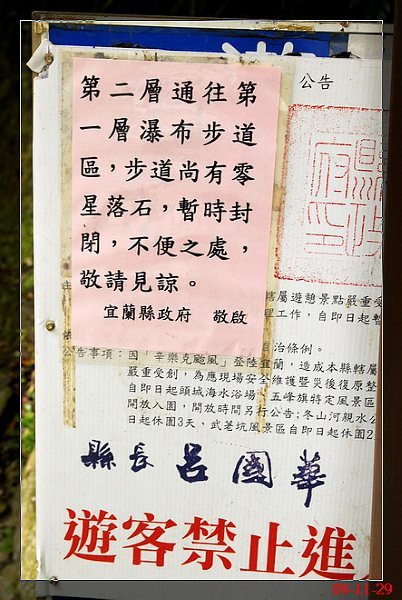 公告
第二層通往第
一層瀑布步道
區，步道尚有零
星落石，暫時封
閉，不便之處，
敬請見諒。
宜蘭縣政府 敬啟
轄屬遊憩景點嚴重受
工作，自即日起暫
治條例。
公告事項：因「辛樂克颱風」登陸宜蘭，造成本縣轄屬
嚴重受創，為應現場安全維護暨災後復原整
自即日起頭城海水浴場、五峰旗特定風景區
開放入園，開放時間另行公告；冬山河親水公
日起休園3天，武荖坑風景區自即日起休園2
縣長 呂國華
遊客禁止進
09-11-29